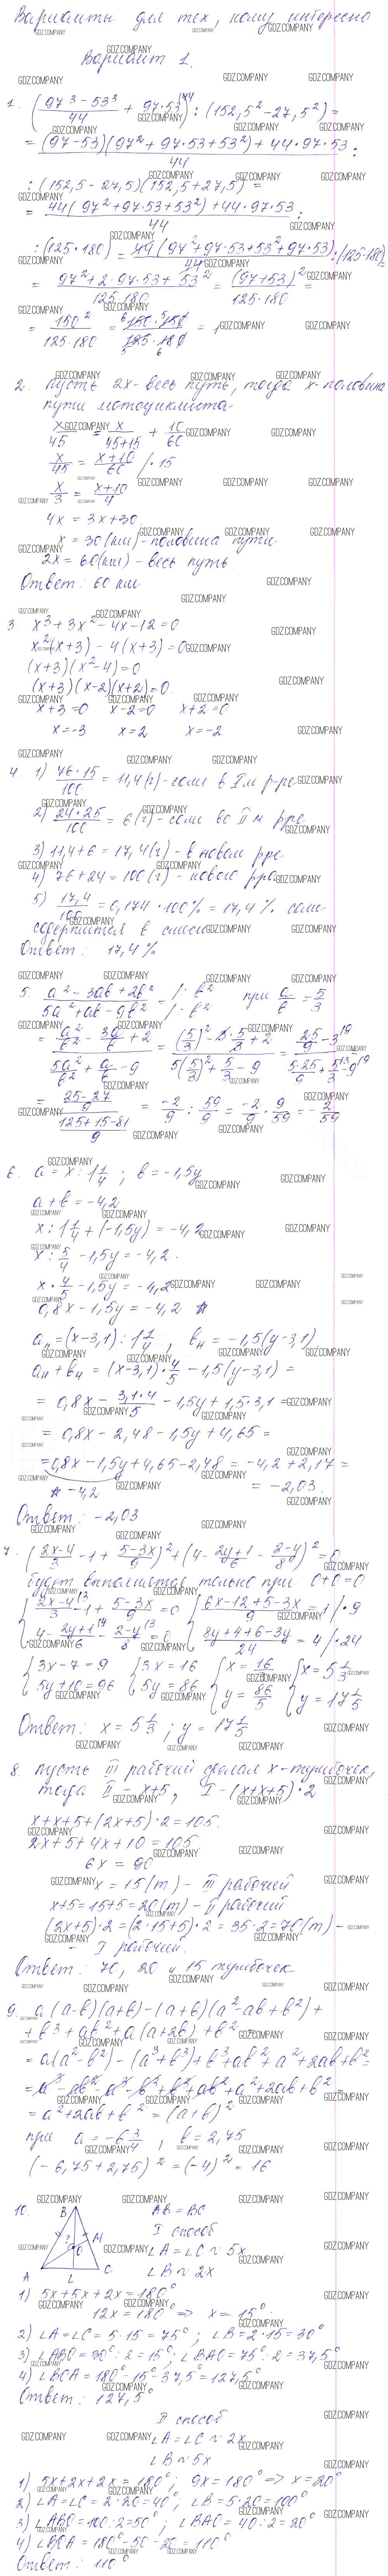 Варианты для тех, кому интересно
Вариант 1.
1. ((97³ - 53³)/44 + 97·53) : (152,5² - 27,5²) =
= ((97-53)(97² + 97·53 + 53²) + 44·97·53)/44 :
: (152,5 - 27,5)(152,5 + 27,5) =
= (44(97² + 97·53 + 53²) + 44·97·53)/44 :
: (125·180) = 44(97² + 97·53 + 53² + 97·53)/44 : (125·180) =
= (97² + 2·97·53 + 53²)/(125·180) = (97+53)²/(125·180) =
= 150²/(125·180) = (150·150)/(125·180) = 1
2. Пусть 2x - весь путь, тогда x - половина
пути мотоциклиста
x/45 = x/(45+15) + 10/60
x/45 = (x+10)/60 /·15
x/3 = (x+10)/4
4x = 3x + 30
x = 30 (км) - половина пути
2x = 60 (км) - весь путь
Ответ: 60 км
3. x³ + 3x² - 4x - 12 = 0
x²(x+3) - 4(x+3) = 0
(x+3)(x²-4) = 0
(x+3)(x-2)(x+2) = 0
x+3=0 x-2=0 x+2=0
x=-3 x=2 x=-2
4. 1) (76·15)/100 = 11,4 (г) - соли в I м р-ре
2) (24·25)/100 = 6 (г) - соли во II м р-ре
3) 11,4 + 6 = 17,4 (г) - в новом р-ре
4) 76 + 24 = 100 (г) - нового р-ра
5) 17,4/100 = 0,174 · 100% = 17,4% соли
содержится в смеси
Ответ: 17,4%
5. (a² - 3ab + 2b²)/(5a² + ab - 9b²) = /: b² /: b² при a/b = 5/3
= (a²/b² - 3a/b + 2)/(5a²/b² + a/b - 9) = ((5/3)² - 3·5/3 + 2)/(5(5/3)² + 5/3 - 9) = (25/9 - 3)/(5·25/9 + 5/3 - 9) =
= ((25-27)/9)/((125+15-81)/9) = -2/9 : 59/9 = -2/9 · 9/59 = -2/59
6. a = x : 1 1/4 ; b = -1,5y
a + b = -4,2
x : 1 1/4 + (-1,5y) = -4,2
x : 5/4 - 1,5y = -4,2
x · 4/5 - 1,5y = -4,2
0,8x - 1,5y = -4,2 *
aн = (x-3,1) : 1 1/4 , bн = -1,5(y-3,1)
aн + bн = (x-3,1) · 4/5 - 1,5(y-3,1) =
= 0,8x - (3,1·4)/5 - 1,5y + 1,5·3,1 =
= 0,8x - 2,48 - 1,5y + 4,65 =
= 0,8x - 1,5y + 4,65 - 2,48 = -4,2 + 2,17 =
* -4,2 = -2,03
Ответ: -2,03
7. ((2x-4)/3 - 1 + (5-3x)/9)² + (4 - (2y+1)/6 - (2-y)/8)² = 0
будет выполняться только при 0+0=0
{ (2x-4)/3 - 1 + (5-3x)/9 = 0 { (6x-12+5-3x)/9 = 1 /·9
{ 4 - (2y+1)/6 - (2-y)/8 = 0 { (8y+4+6-3y)/24 = 4 /·24
{ 3x - 7 = 9 { 3x = 16 { x = 16/3 { x = 5 1/3
{ 5y + 10 = 96 { 5y = 86 { y = 86/5 { y = 17 1/5
Ответ: x = 5 1/3 ; y = 17 1/5
8. Пусть III рабочий сделал x - тумбочек,
тогда II - x+5, I - (x+x+5)·2
x + x + 5 + (2x+5)·2 = 105
2x + 5 + 4x + 10 = 105
6x = 90
x = 15 (т) - III рабочий
x+5 = 15+5 = 20 (т) - II рабочий
(2x+5)·2 = (2·15+5)·2 = 35·2 = 70 (т) -
- I рабочий.
Ответ: 70, 20 и 15 тумбочек
9. a(a-b)(a+b) - (a+b)(a² - ab + b²) +
+ b³ + ab² + a(a+2b) + b² =
= a(a²-b²) - (a³+b³) + b³ + ab² + a² + 2ab + b² =
= a³ - ab² - a³ - b³ + b³ + ab² + a² + 2ab + b² =
= a² + 2ab + b² = (a+b)²
при a = -6 3/4 , b = 2,75
(-6,75 + 2,75)² = (-4)² = 16
10. B AB = BC
I способ
M ∠A = ∠C ~ 5x
O ∠B ~ 2x
A L C
1) 5x + 5x + 2x = 180°
12x = 180° => x = 15°
2) ∠A = ∠C = 5·15 = 75° ; ∠B = 2·15 = 30°
3) ∠ABO = 30° : 2 = 15° ; ∠BAO = 75° : 2 = 37,5°
4) ∠BOA = 180° - 15° - 37,5° = 127,5°
Ответ: 127,5°
II способ
∠A = ∠C ~ 2x
∠B ~ 5x
1) 5x + 2x + 2x = 180° ; 9x = 180° => x = 20°
2) ∠A = ∠C = 2·20 = 40° ; ∠B = 5·20 = 100°
3) ∠ABO = 100 : 2 = 50° ; ∠BAO = 40 : 2 = 20°
4) ∠BOA = 180° - 50 - 20 = 110°
Ответ: 110°
GDZ.COMPANY